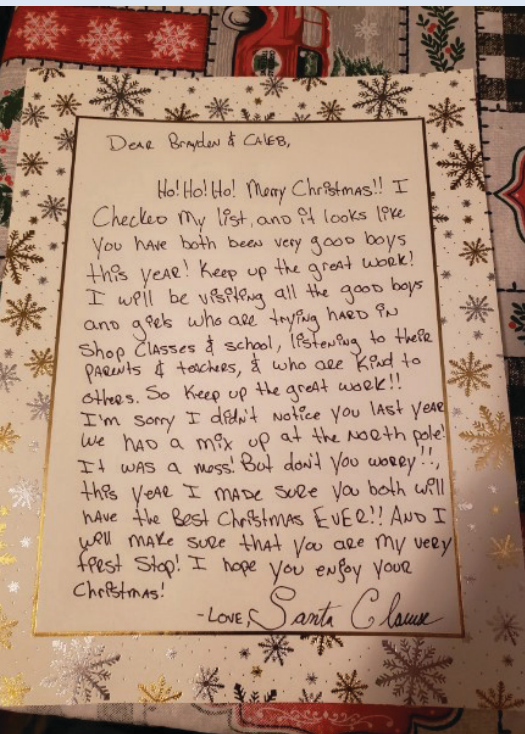 Dear Brayden & Caleb,
Ho! Ho! Ho! Merry Christmas!! I
Checked my list, and it looks like
you have both been very good boys
this year! Keep up the great work!
I will be visiting all the good boys
and girls who are trying hard in
Shop Classes & school, listening to their
parents & teachers, & who are kind to
others. So keep up the great work!!
I'm sorry I didn't notice you last year
we had a mix up at the North pole!
It was a mess! But don't you worry!!,
this year I made sure you both will
have the Best Christmas EVER!! And I
will make sure that you are my very
first stop! I hope you enjoy your
Christmas!
-Love, Santa Clause